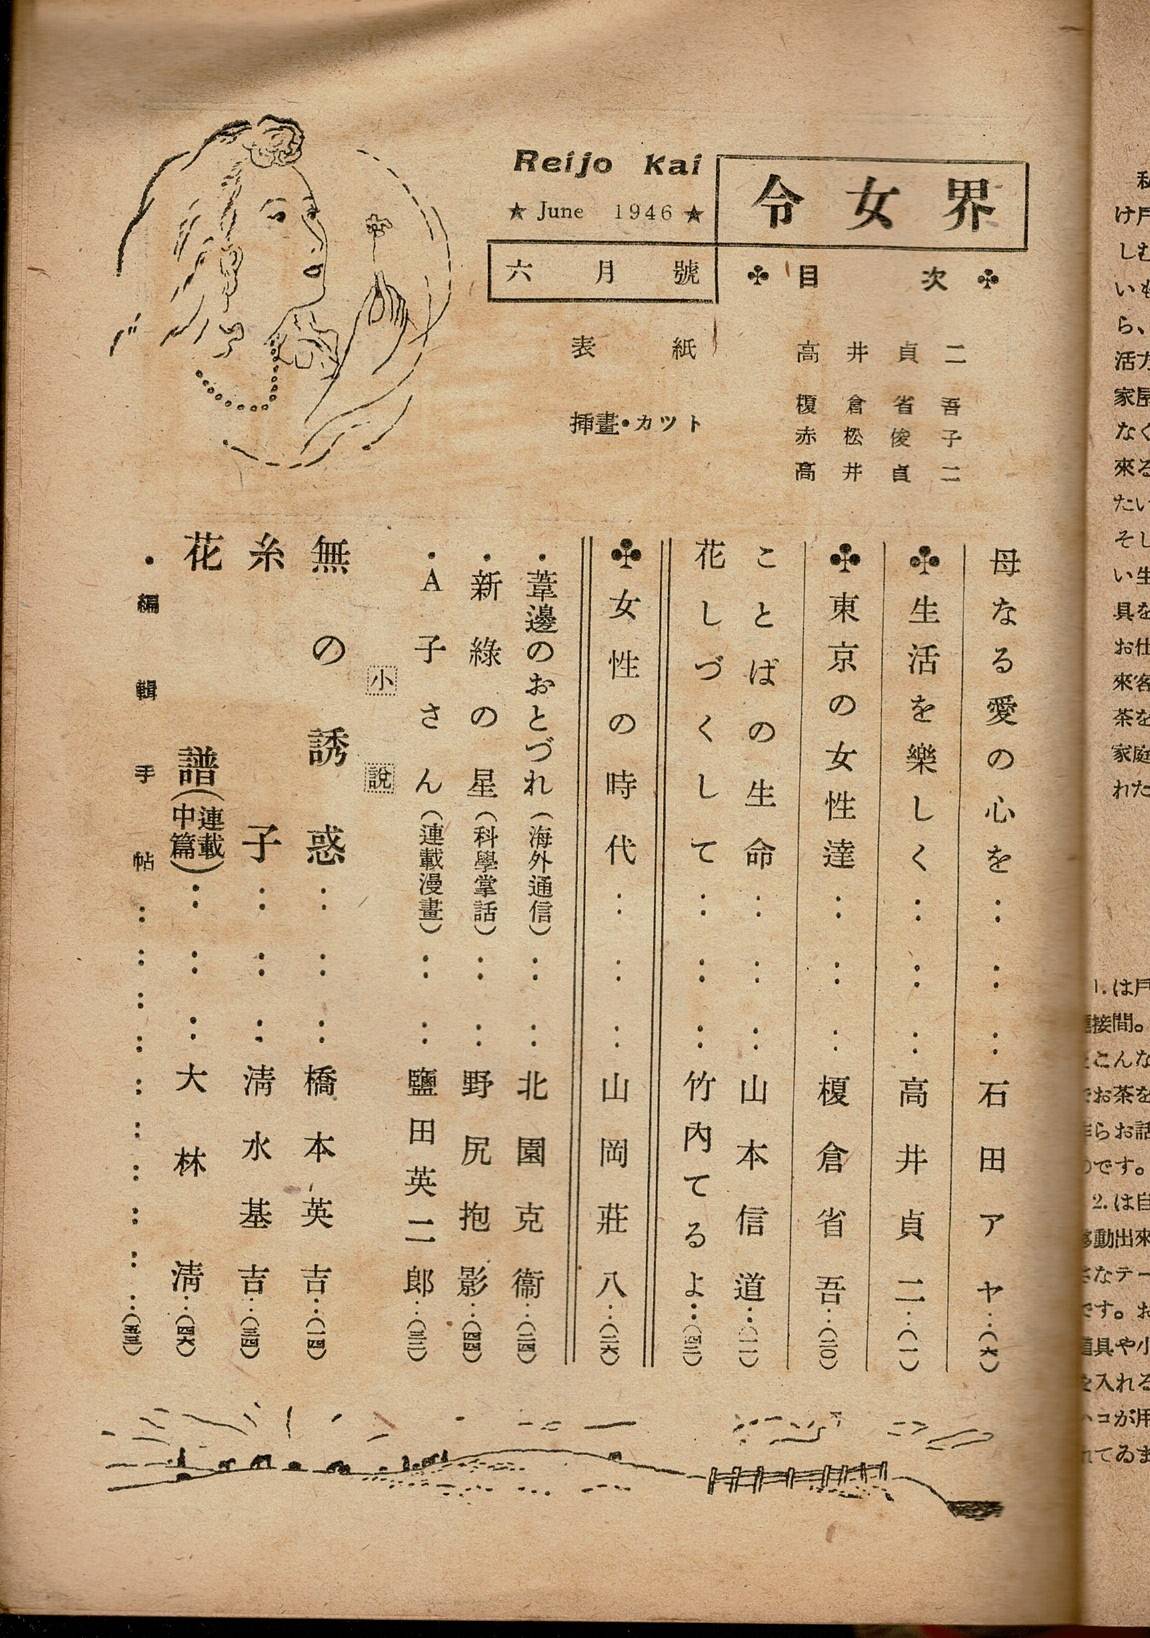 Reijo Kai
★ June 1946 ★
令女界
六月號
♣ 目次 ♣
表紙 高井貞二
挿畫・カツト 榎倉省吾
赤松俊子
高井貞二
母なる愛の心を……石田アヤ…(六)
♣生活を樂しく……高井貞二…(一)
♣東京の女性達……榎倉省吾…(二〇)
ことばの生命……山本信道…(一一)
花しづくして……竹内てるよ…
♣女性の時代……山岡莊八…(二六)
・葦邊のおとづれ(海外通信)……北園克衞…(二四)
・新綠の星(科學掌話)……野尻抱影…(四四)
・A子さん(連載漫畫)……鹽田英二郎…(三二)
小說
無の誘惑……橋本英吉…(一四)
糸子……淸水基吉…(三四)
花譜(連載中篇)……大林淸…(四六)
・編輯手帖……(五三)
私
け戶
しむ
いも
ら、
活方
家屋
なく
來る
たい
そし
い生
具を
お仕
來客
茶を
家庭
れた
1.は戶
接間。
こんな
お茶を
らお話
のです。
2.は自
動出來
さなテー
です。お
道具や小
を入れる
ハコが用
れてゐま